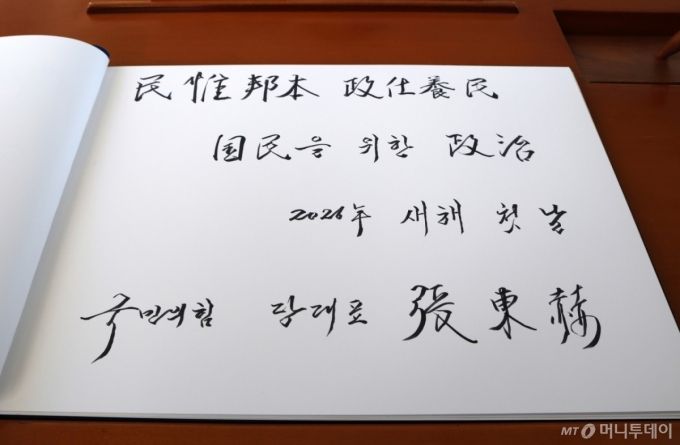 民惟邦本 政在養民
国民을 위한 政治
2026年 새해 첫 날
국민의힘 당대표 張東赫
MT 머니투데이